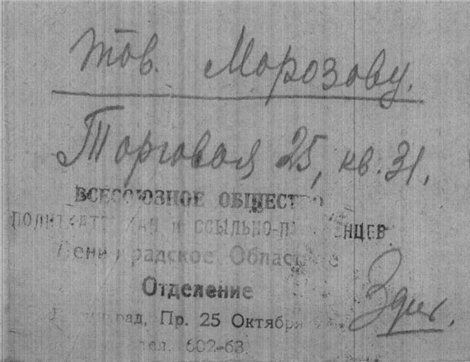 тов. Морозову.
Торговая 25, кв. 31.
ВСЕСОЮЗНОЕ ОБЩЕСТВО
ПОЛИТКАТОРЖАН И ССЫЛЬНО-ПОСЕЛЕНЦЕВ
Ленинградское Областное
Отделение
Ленинград, Пр. 25 Октября
тел. 602-63